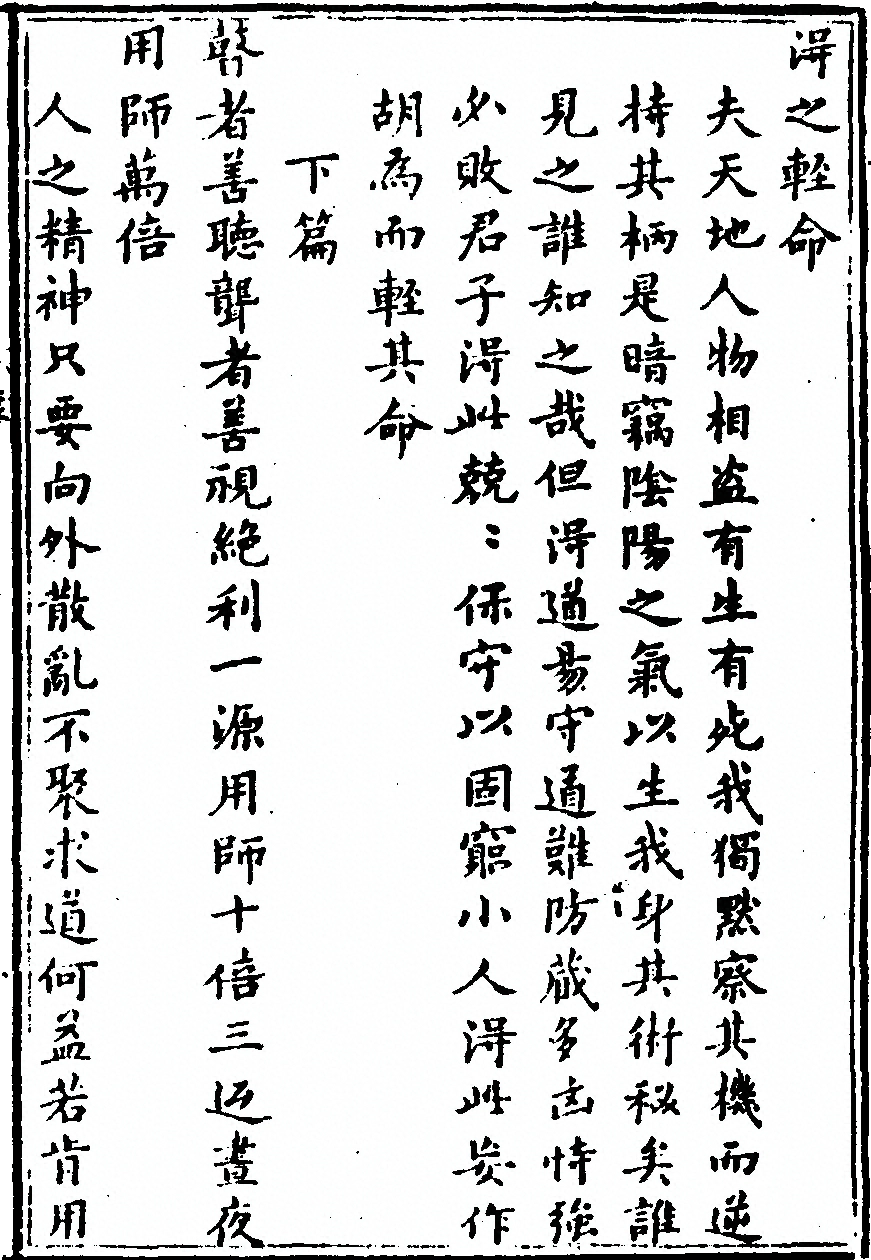 得之輕命
夫天地人物相盜有生有死我獨默察其機而逆
持其柄是暗竊陰陽之氣以生我身其術秘矣誰
見之誰知之哉但得道易守道難防蔵多凶恃強
必敗君子得此兢〻保守以固窮小人得此妄作
胡為而輕其命
下篇
瞽者善聽聾者善視絶利一源用師十倍三返晝夜
用師萬倍
人之精神只要向外散亂不聚求道何益若肯用